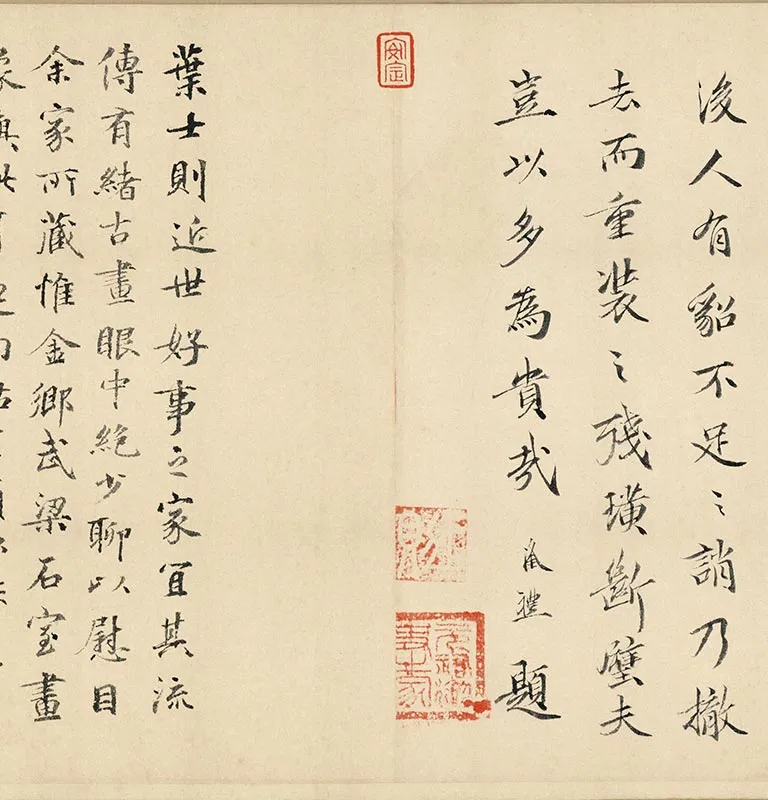 後人有貂不足之誚乃撤
去而重装之殘璜斷璧夫
豈以多為貴哉
題
安定
葉士則近世好事之家宜其流
傳有緒古畫眼中絶少聊以慰目
余家所藏惟金鄉武梁石室畫